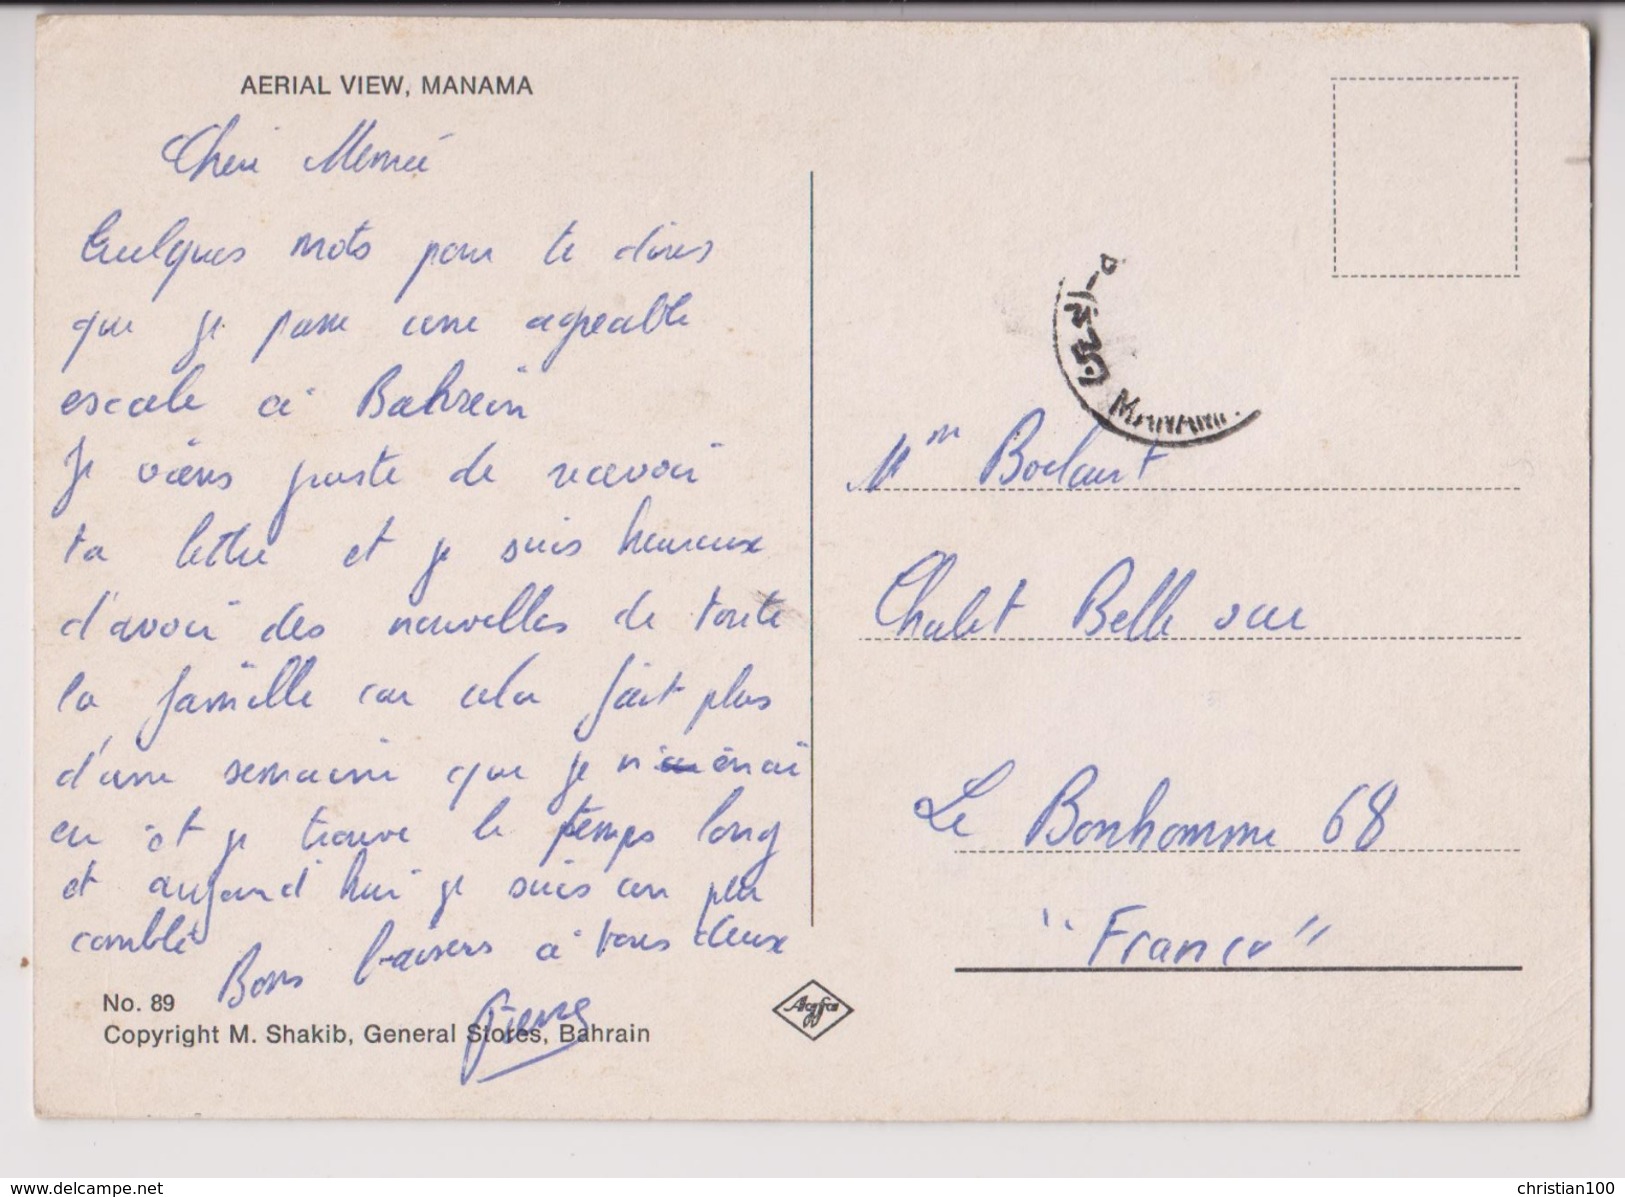 AERIAL VIEW, MANAMA
Cheri Memée
Quelques mots pour te dires
que je passe une agreable
escale à Bahrein
Je viens juste de recevoir
ta lettre et je suis heureux
d'avoir des nouvelles de toute
la famille car cela fait plus
d'une semaine que je n'en ai
eu et je trouve le temps long
et aujourd'hui je suis un peu
comblé
Bons baisers à tous deux
Pierre
No. 89
Copyright M. Shakib, General Stores, Bahrain
Agfa
Mme Boclart
Chalet Belle vue
Le Bonhomme 68
"France"
www.delcampe.net
christian100